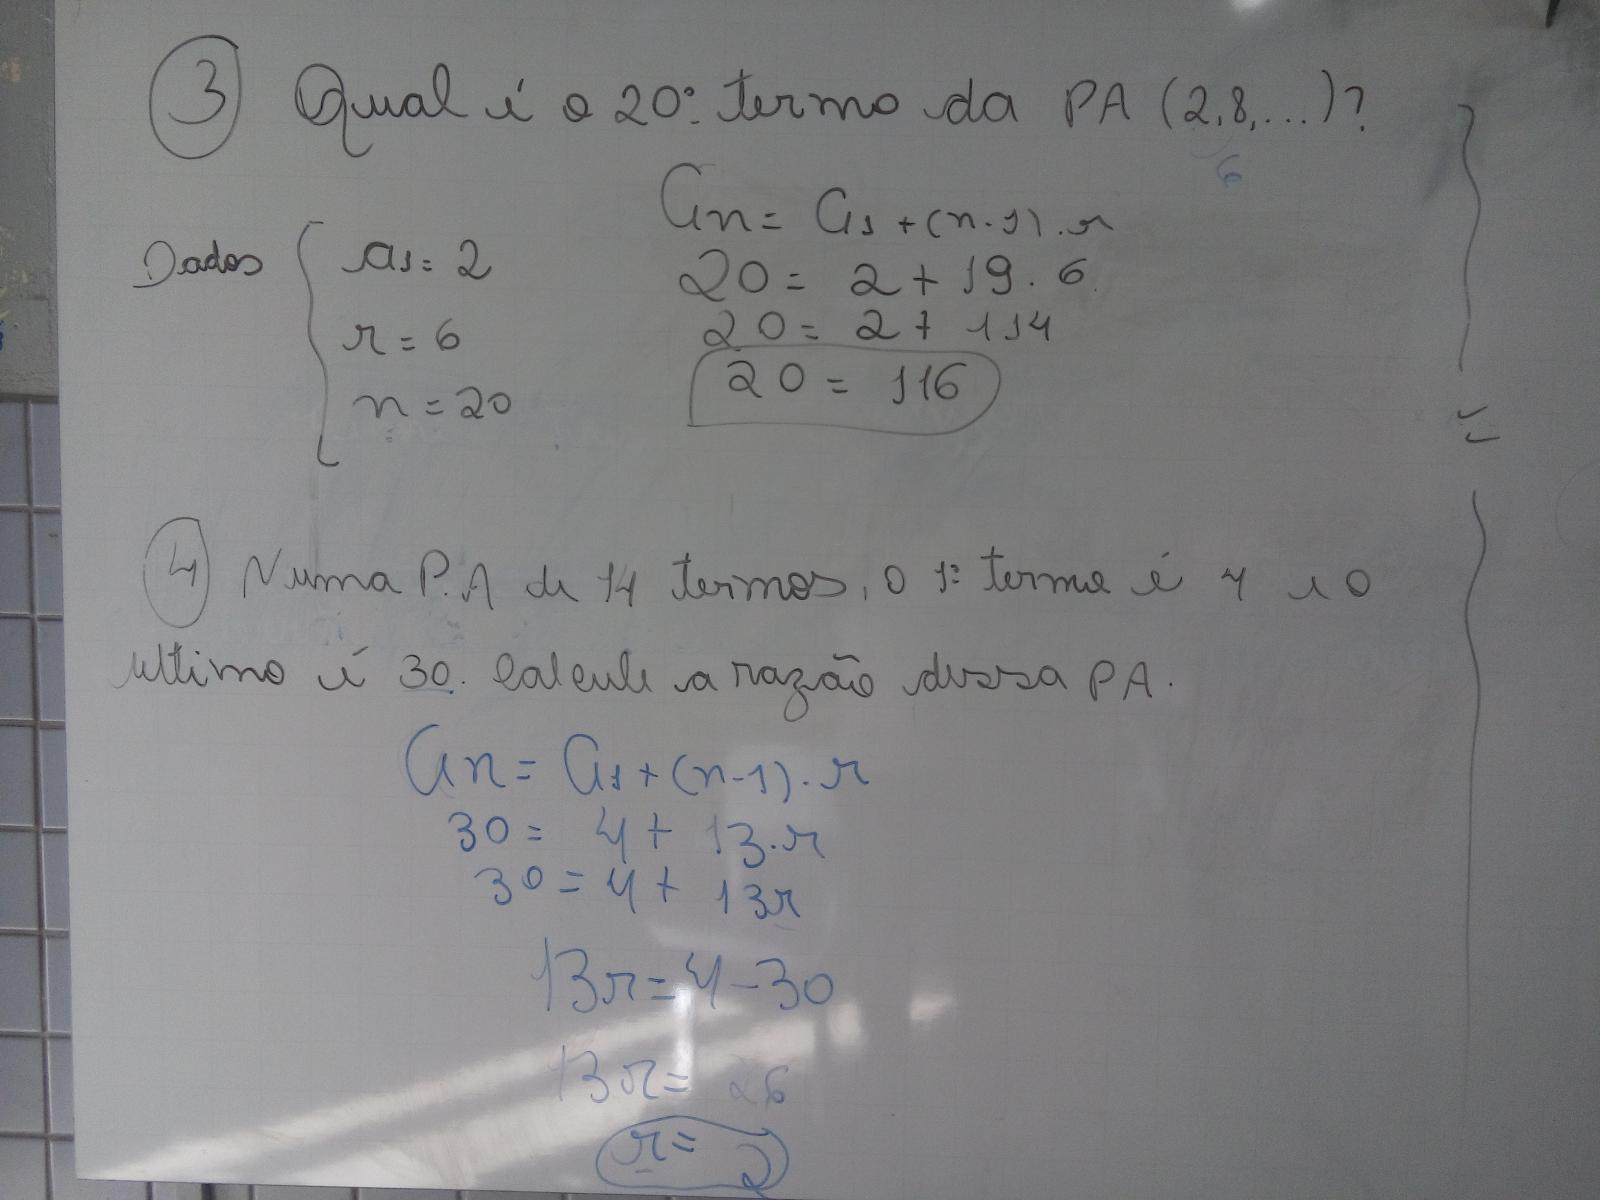 3 Qual é o 20º termo da PA (2,8,...)?
6
Dados
a1 = 2
r = 6
n = 20
an = a1 + (n-1).r
20 = 2 + 19.6
20 = 2 + 114
20 = 116
4 Numa P.A de 14 termos, o 1º termo é 4 e o
ultimo é 30. Calcule a razão dessa PA.
an = a1 + (n-1).r
30 = 4 + 13.r
30 = 4 + 13r
13r = 4 - 30
13r = 26
r = 2